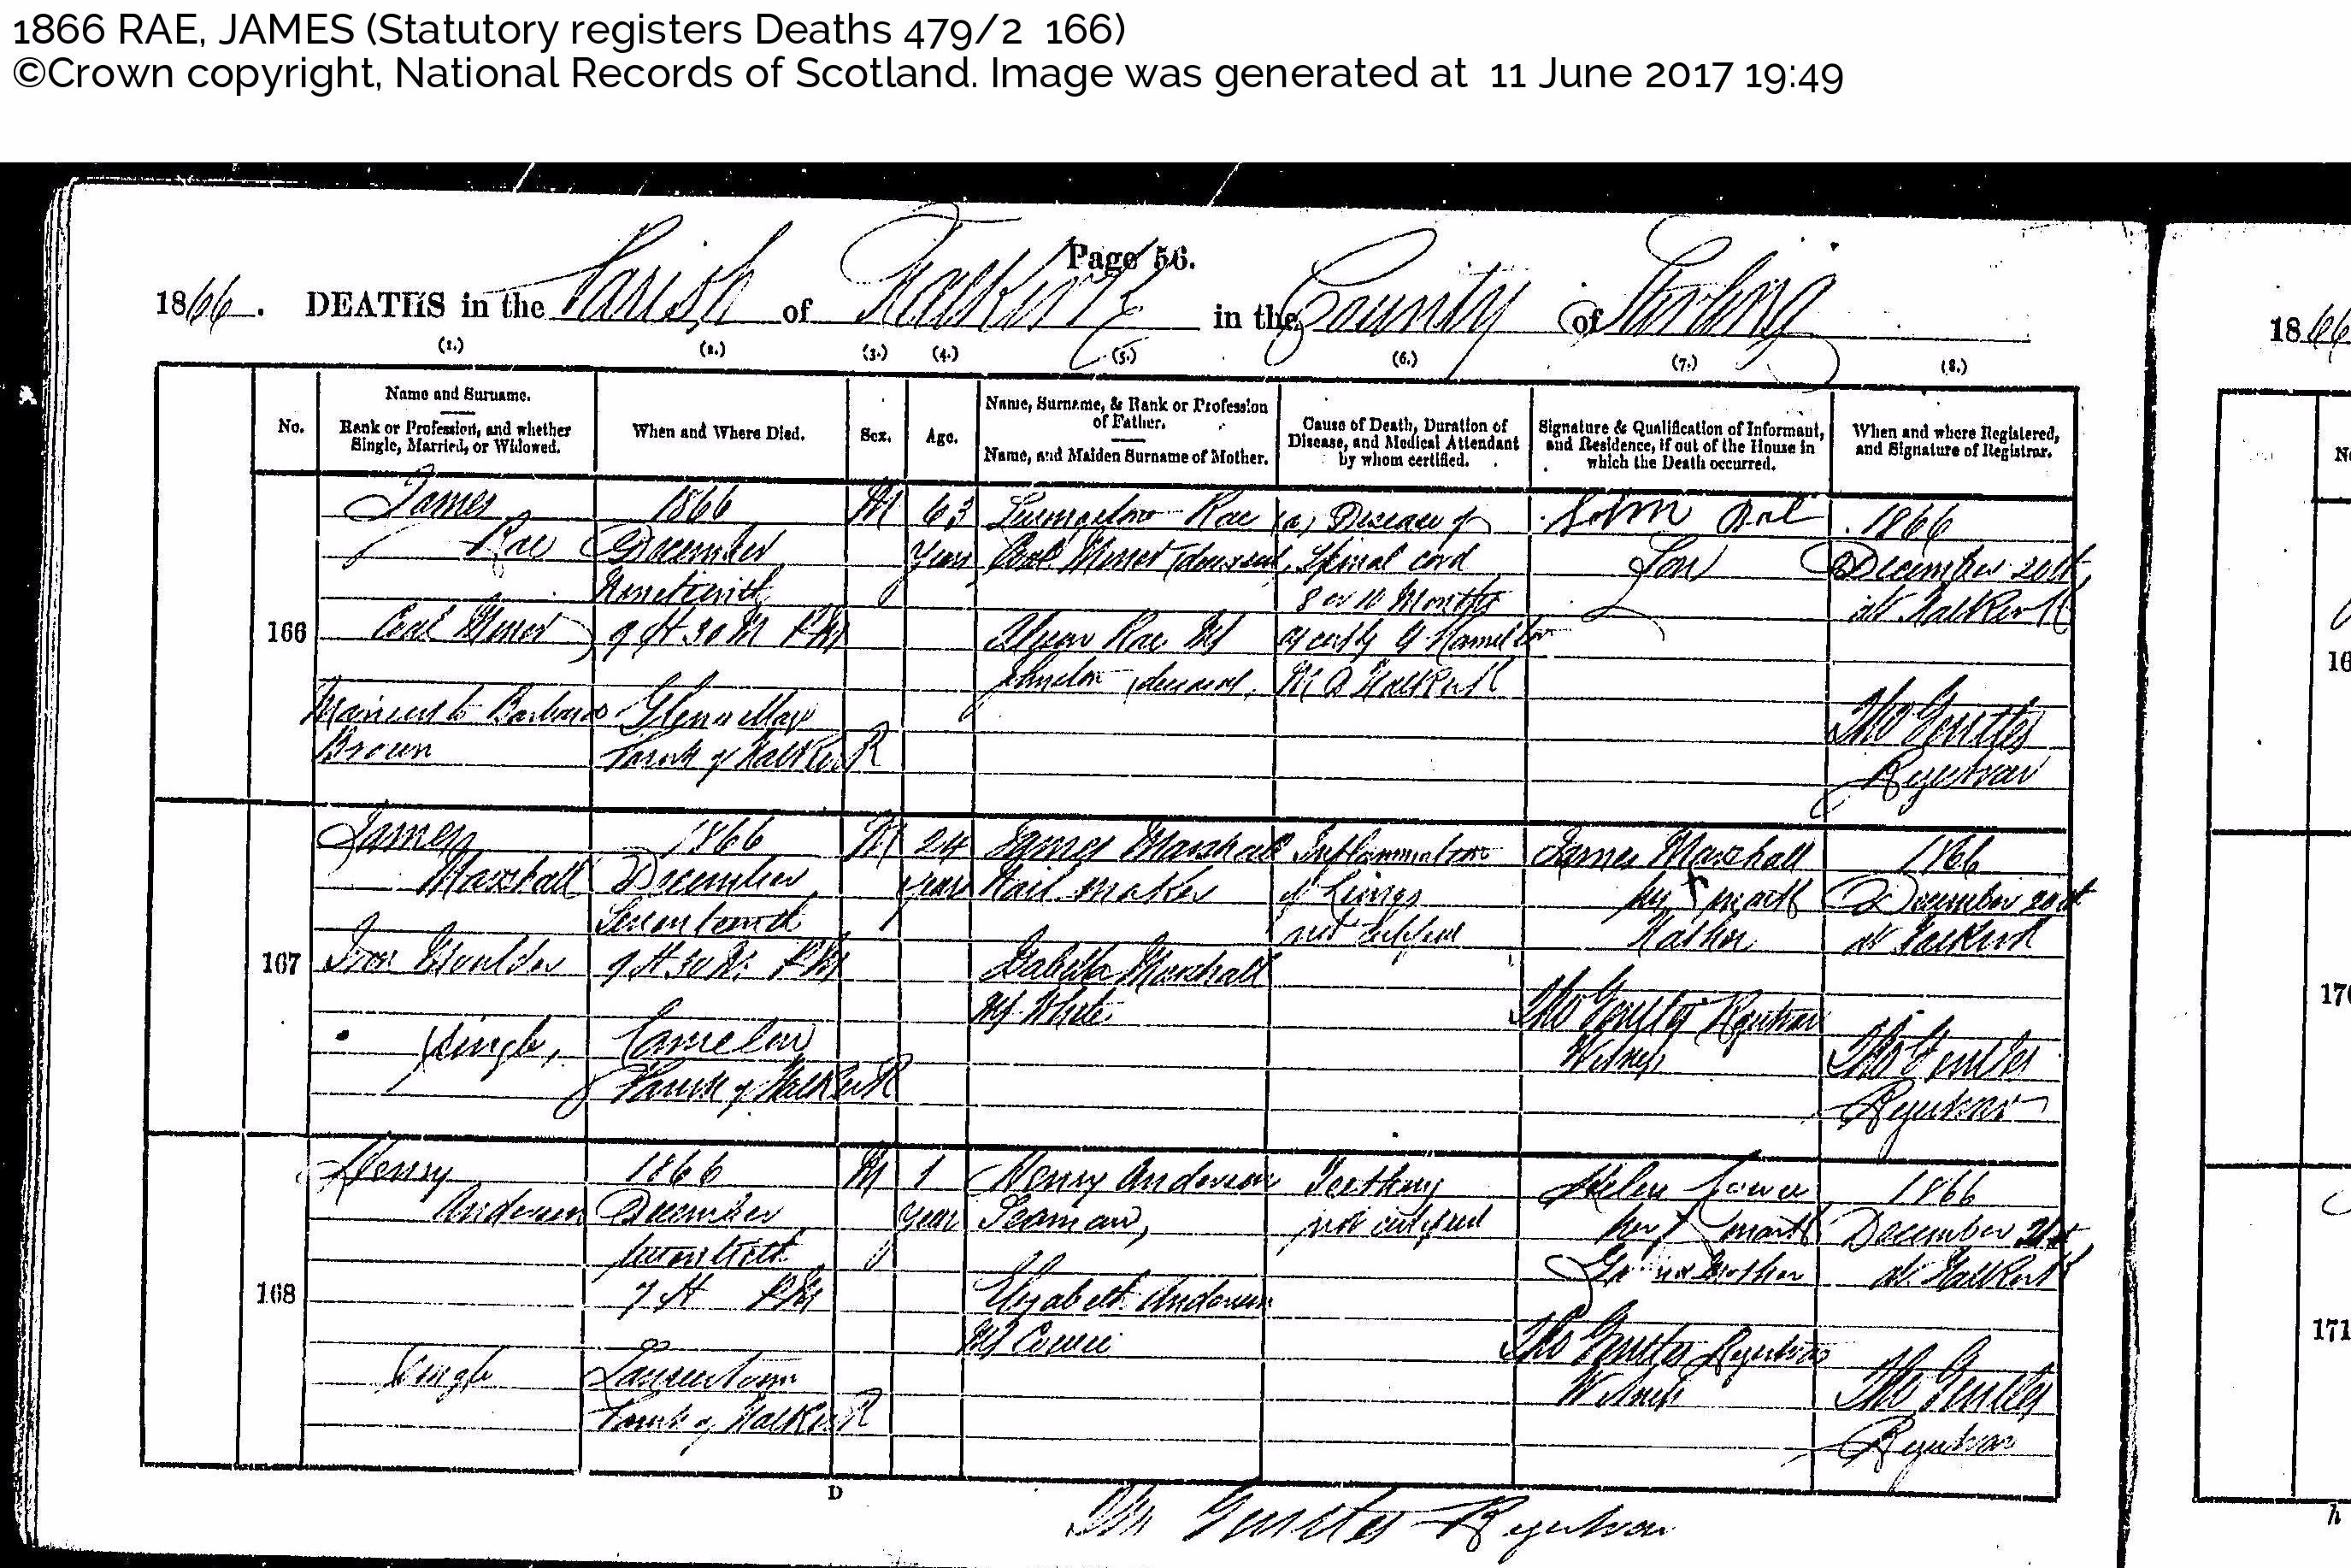 1866 RAE, JAMES (Statutory registers Deaths 479/2 166)
©Crown copyright, National Records of Scotland. Image was generated at 11 June 2017 19:49
Page 56.
1866. DEATHS in the Parish of Falkirk in the County of Stirling
1866
(1.) (2.) (3.) (4.) (5.) (6.) (7.) (8.)
No.
Name and Surname.
Rank or Profession, and whether
Single, Married, or Widowed.
When and Where Died.
Sex.
Age.
Name, Surname, & Rank or Profession
of Father.
Name, and Maiden Surname of Mother.
Cause of Death, Duration of
Disease, and Medical Attendant
by whom certified.
Signature & Qualification of Informant,
and Residence, if out of the House in
which the Death occurred.
When and where Registered,
and Signature of Registrar.
166
James
Rae
Coal Miner
Married to Barbara
Brown
1866
December
Nineteenth
9 H 30 M PM
Glen Village
Parish of Falkirk
M
63
Years
Livingston Rae
Coal Miner (deceased)
Alison Rae MS
Johnston (deceased)
(a) Disease of
Spinal cord
8 or 10 Months
as cert by G Hamilton
MD Falkirk
John Rae
Son
1866
December 20th
at Falkirk
Tho Gentles
Registrar
167
James
Marshall
Iron Moulder
(Single)
1866
December
Seventeenth
9 H 30 M PM
Camelon
Parish of Falkirk
M
24
years
James Marshall
Nail maker
Isabella Marshall
MS White
Inflammation
of Lungs
not certified
James Marshall
his x mark
Father
Tho Gentles Registrar
Witness
1866
December 20th
at Falkirk
Tho Gentles
Registrar
168
Henry
Anderson
Single
1866
December
Twentieth
7 H PM
Laurieston
Parish of Falkirk
M
1
year
Henry Anderson
Seaman,
Elizabeth Anderson
MS Cowie
Teething
not certified
Helen
her x mark
Grand Mother
Tho Gentles Registrar
Witness
1866
December 21st
at Falkirk
Tho Gentles
Registrar
D
Tho Gentles Registrar
171